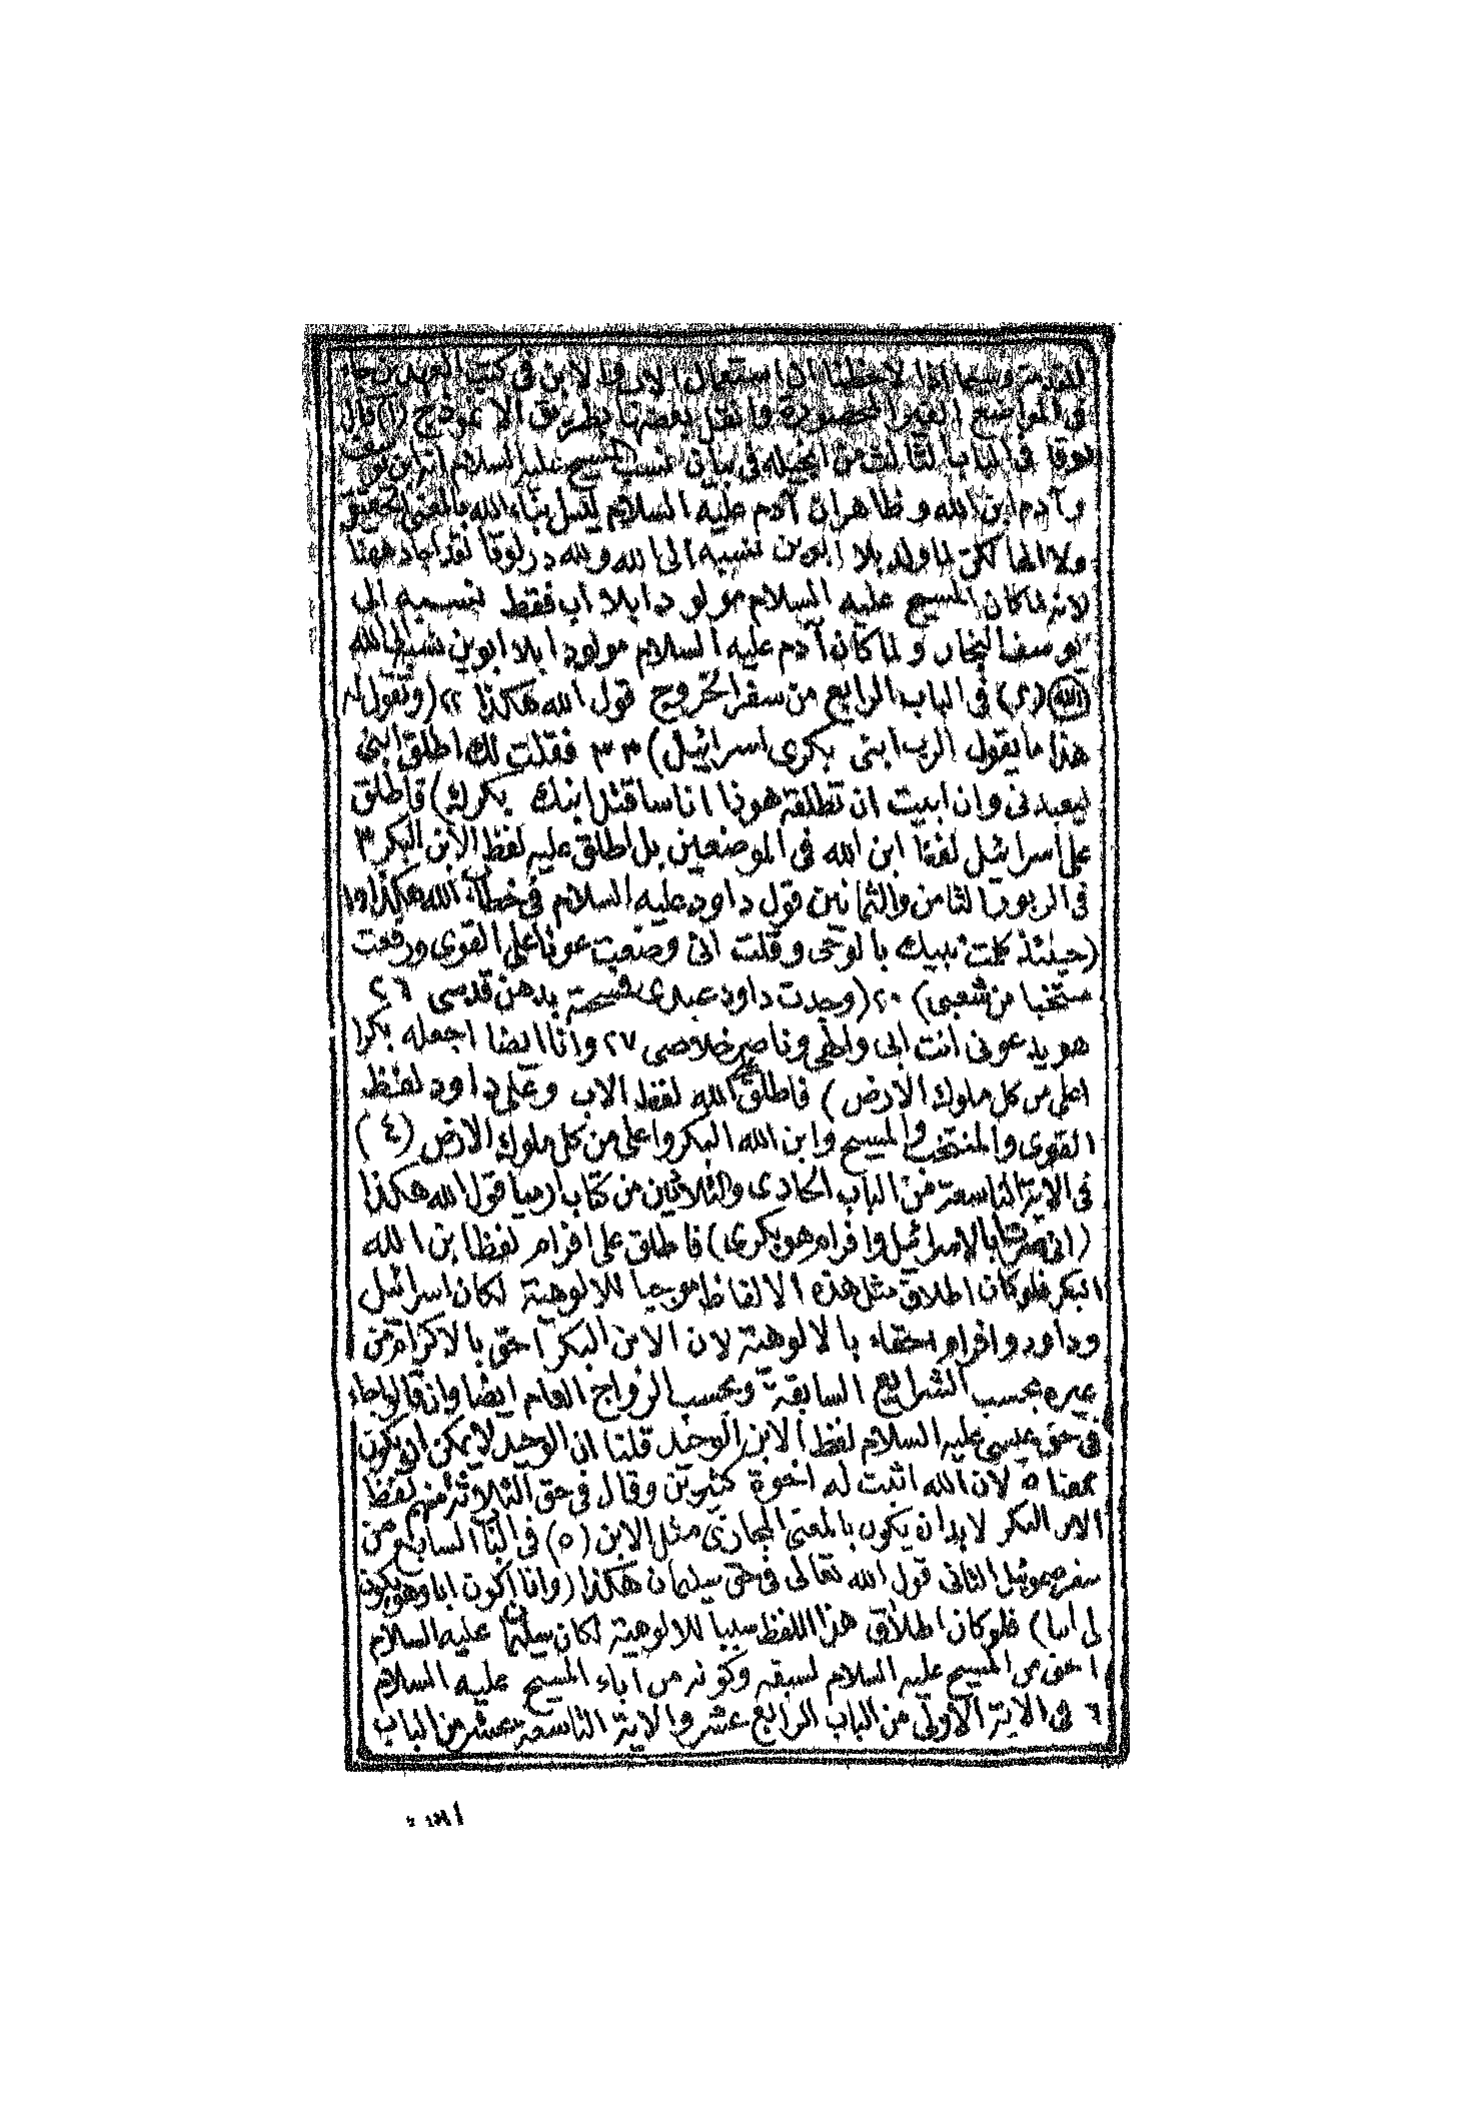 المقدمة وسيما اذا لاحظنا ان استعمال الاب والابن فى كتب العهدين جاء
فى المواضع الغير المحصورة وانقل بعضها بطريق الانموذج (١) قال
لوقا فى الباب الثالث من انجيله فى بيان نسب المسيح عليه السلام انه ابن يوسف
وآدم ابن الله وظاهر ان آدم عليه السلام ليس ابناء الله بالمعنى الحقيقى
ولا الها لكن لما ولد بلا ابوين نسبه الى الله ولله در لوقا لقد اجاد ههنا
لانه لما كان المسيح عليه السلام مولودا بلا أب فقط نسبه الى
يوسف النجار ولما كان آدم عليه السلام مولودا بلا ابوين نسبه الى الله
الله (ى) فى الباب الرابع من سفر الخروج قول الله هكذا ٢٢ (وتقول له
هذا ما يقول الرب ابنى بكرى اسرائيل) ٢٣ فقلت لك اطلق ابنى
ليعبدنى وان ابيت ان تطلقه هوذا انا ساقتل ابنك بكرك) فاطلق
على اسرائيل لفظ ابن الله فى الموضعين بل اطلق عليه لفظ الابن البكر ٣
فى الزبور الثامن والثمانين قول داود عليه السلام فى خطاب الله هكذا ١٩
(حينئذ كلمت نبيك بالوحى وقلت انى وضعت عونا على القوى ورفعت
منتخبا من شعبى) ٢٠ (وجدت داود عبدى فمسحته بدهن قدسى ٢٦
هو يدعونى انت ابى والهى وناصر خلاصى ٢٧ وانا ايضا اجعله بكرا
اعلى من كل ملوك الارض) فاطلق على الله لفظ الاب وعلى داود لفظ
القوى والمنتخب والمسيح وابن الله البكر واعلى من كل ملوك الارض (٤)
فى الاية التاسعة من الباب الحادى والثلاثين من كتاب ارميا قول الله هكذا
(انى صرت ابا لاسرائيل وافرام هو بكرى) فاطلق على افرام لفظ ابن الله
البكر فلو كان اطلاق مثل هذه الالفاظ موجبا للالوهية لكان اسرائيل
وداود وافرام احقاء بالالوهية لان الابن البكر احق بالاكرام من
غيره بحسب الشرايع السابقة وبحسب الرواج العام ايضا وان قالوا جاء
فى حق عيسى عليه السلام لفظ الابن الوحيد قلنا ان الوحيد لا يمكن ان يكون
بمعناه لان الله اثبت له اخوة كثيرين وقال فى حق الثلاثة منهم لفظ
الابن البكر لابد ان يكون بالمعنى المجازى مثل الابن (٥) فى الباب السابع من
سفر صموئيل الثانى قول الله تعالى فى حق سليمان هكذا (وانا اكون ابا وهو يكون
لى ابنا) فلو كان اطلاق هذا اللفظ سببا للالوهية لكان سليمان عليه السلام
احق من المسيح عليه السلام لسبقه وكونه من اباء المسيح عليه السلام
٦ فى الاية الاولى من الباب الرابع عشر والاية التاسعة عشر من الباب